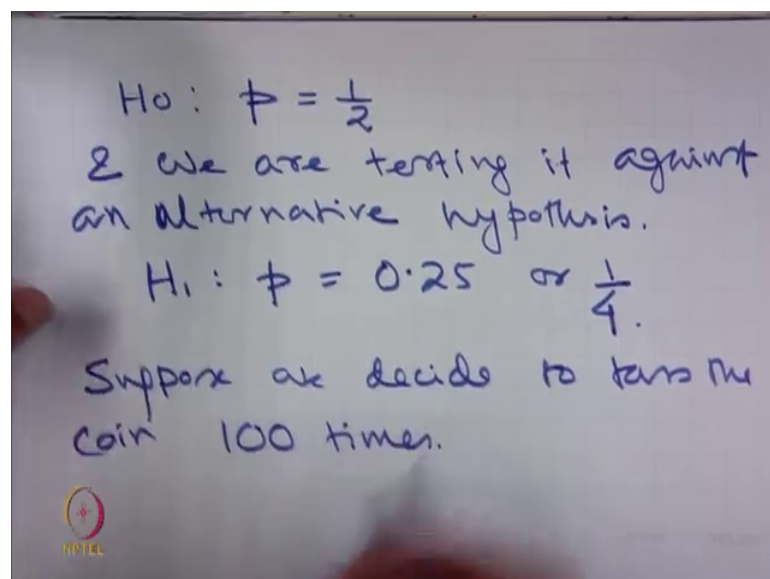 H0 : p = 1/2
& we are testing it against
an alternative hypothsis.
H1 : p = 0.25 or 1/4.
Suppose we decide to toss the
coin 100 times.
NPTEL